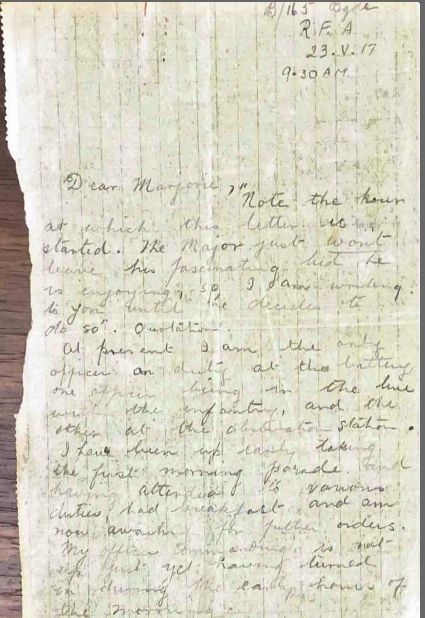 B/165 Bgde
R.F.A.
23.V.17
9.30 AM
Dear Marjorie, "
Note the hour
at which this letter is
started. The Major just wont
leave his fascinating he
is enjoying, so I am writing
to you until he decides to
do so". Quotation.
At present I am the only
officer on duty at the battery
one officer being in the line
with the infantry, and the
other at the observation station.
I have been up early taking
the first morning parade and
having attended to various
duties, had breakfast and am
now awaiting for further orders.
My officer commanding is not
up just yet having turned
in during the early hours of
the morning.